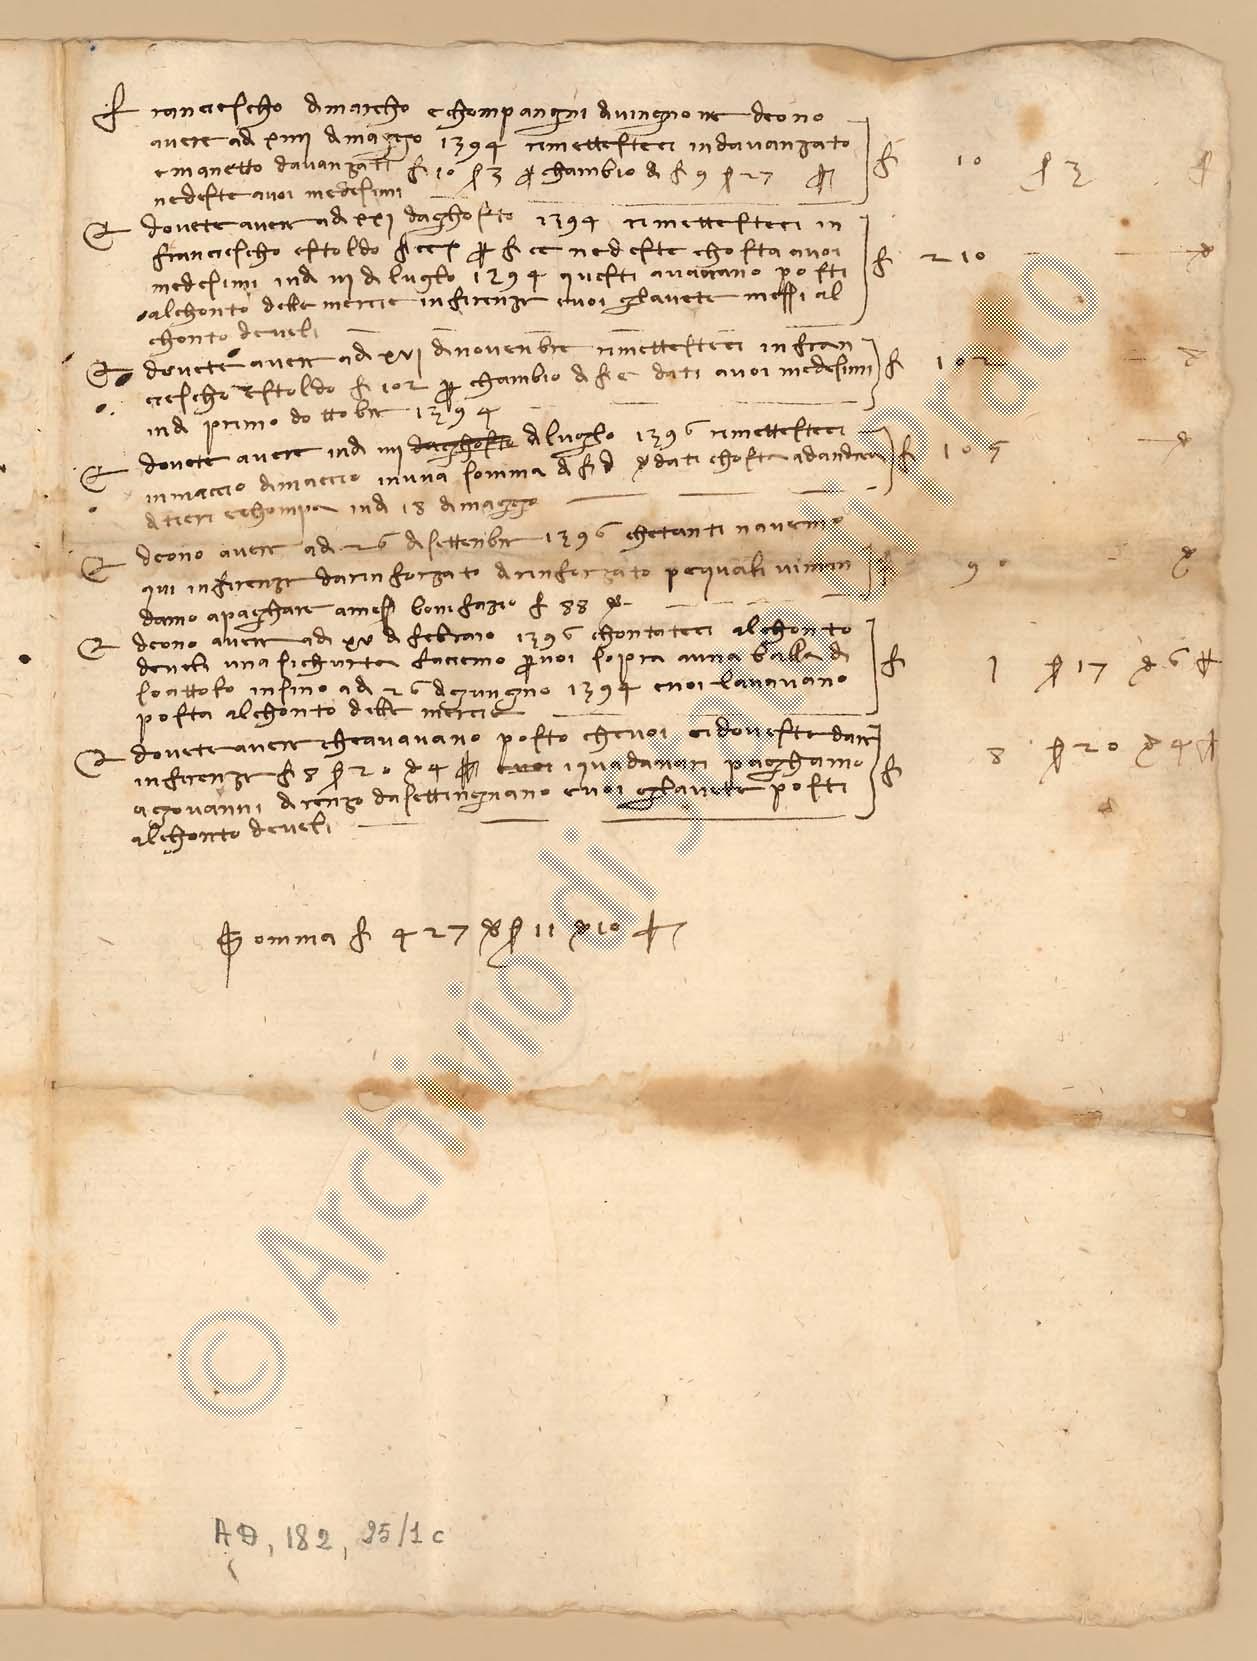 Franciescho dimarcho echompangni divingnone deono
avere adi xiiii dimaggio 1394 rimettesteci indavanzato
emanetto davanzati f 10 s 3 per chambio di f 9 s 27
nedeste avoi medesimi f 10 s 3
E dovete avere adi xxi daghosto 1394 rimettesteci in
franciescho estoldo f ccx per f cc nedeste chosta avoi
medesimi indi iii di luglo 1394 questi avavano posti
alchonto delle mercie infirenze evoi glavete messi al
chonto develi f 210
E dovete avere adi xvi dinovenbre rimettesteci infran
ciescho estoldo f 102 per chambio di f c dati avoi medesimi
indi primo dottobre 1394 f 102
E dovete avere indi iiii daghosto diluglo 1396 rimettesteci
inmaccio dimaccio inuna somma di f d dati chosta adandrea
ditieri echompa indi 18 dimaggio f 105
E deono avere adi 26 disettenbre 1396 chetanti navemo
qui infirenze darinforzato dirinforzato pequali vimm
damo apaghare a mess bonifazio f 88 f 90
E deono avere adi xv di febraio 1396 chontateci alchonto
develi una sichurta faciemo per voi sopra auna balla di
scattolo insino adi 26 digungno 1394 evoi lavavano
posta alchonto delle mercie f 1 s 17 d 6
E dovete avere cheavavano posto chevoi cidoveste dare
infirenze f 8 s 20 d 4 iqua danari paghamo
agiovanni direnzo dasettingnano evoi glavete posti
alchonto develi f 8 s 20 d 4
Somma f 427 s 11 d 10
AD, 182, 25/1 c
© Archivio di Stato di Prato